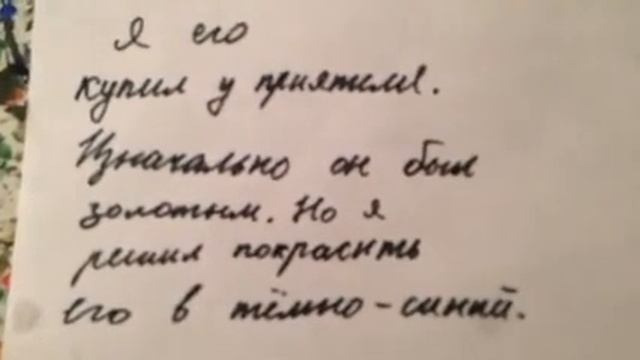 Я его
купил у приятеля.
Изначально он был
золотым. Но я
решил покрасить
его в тёмно-синий.